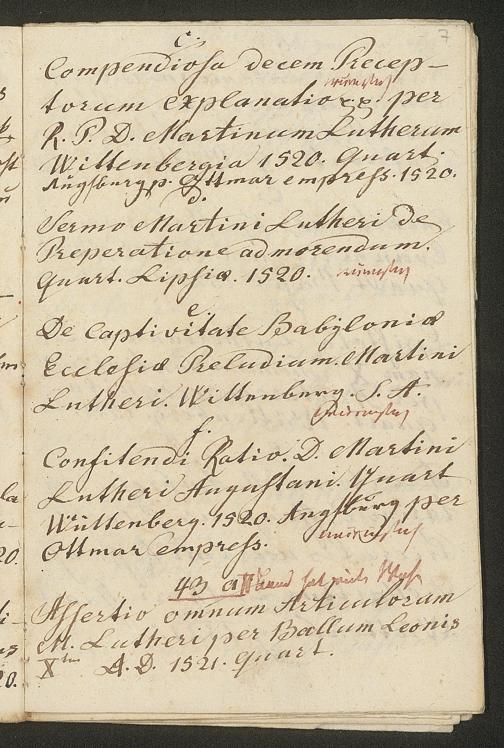 7
c.
Compendiosa decem Precep-
torum explanatio per
R. P. D. Martinum Lutherum
Wittenbergia 1520. Quart.
Augsburg p. Ottmar empress. 1520.
d.
Sermo Martini Lutheri de
Preperatione ad morendum.
Quart. Lipsiæ. 1520.
e.
De Captivitate Babyloniæ
Ecclesiæ Preludium. Martini
Lutheri. Wittenberg. S. A.
f.
Confitendi Ratio. D. Martini
Lutheri Augustani. Quart
Wüttenberg. 1520. Augsburg per
Ottmar empress.
43 a
Assertio omnum Articuloram
M. Lutheri per Bällum Leonis
X A. D. 1521. Quart.